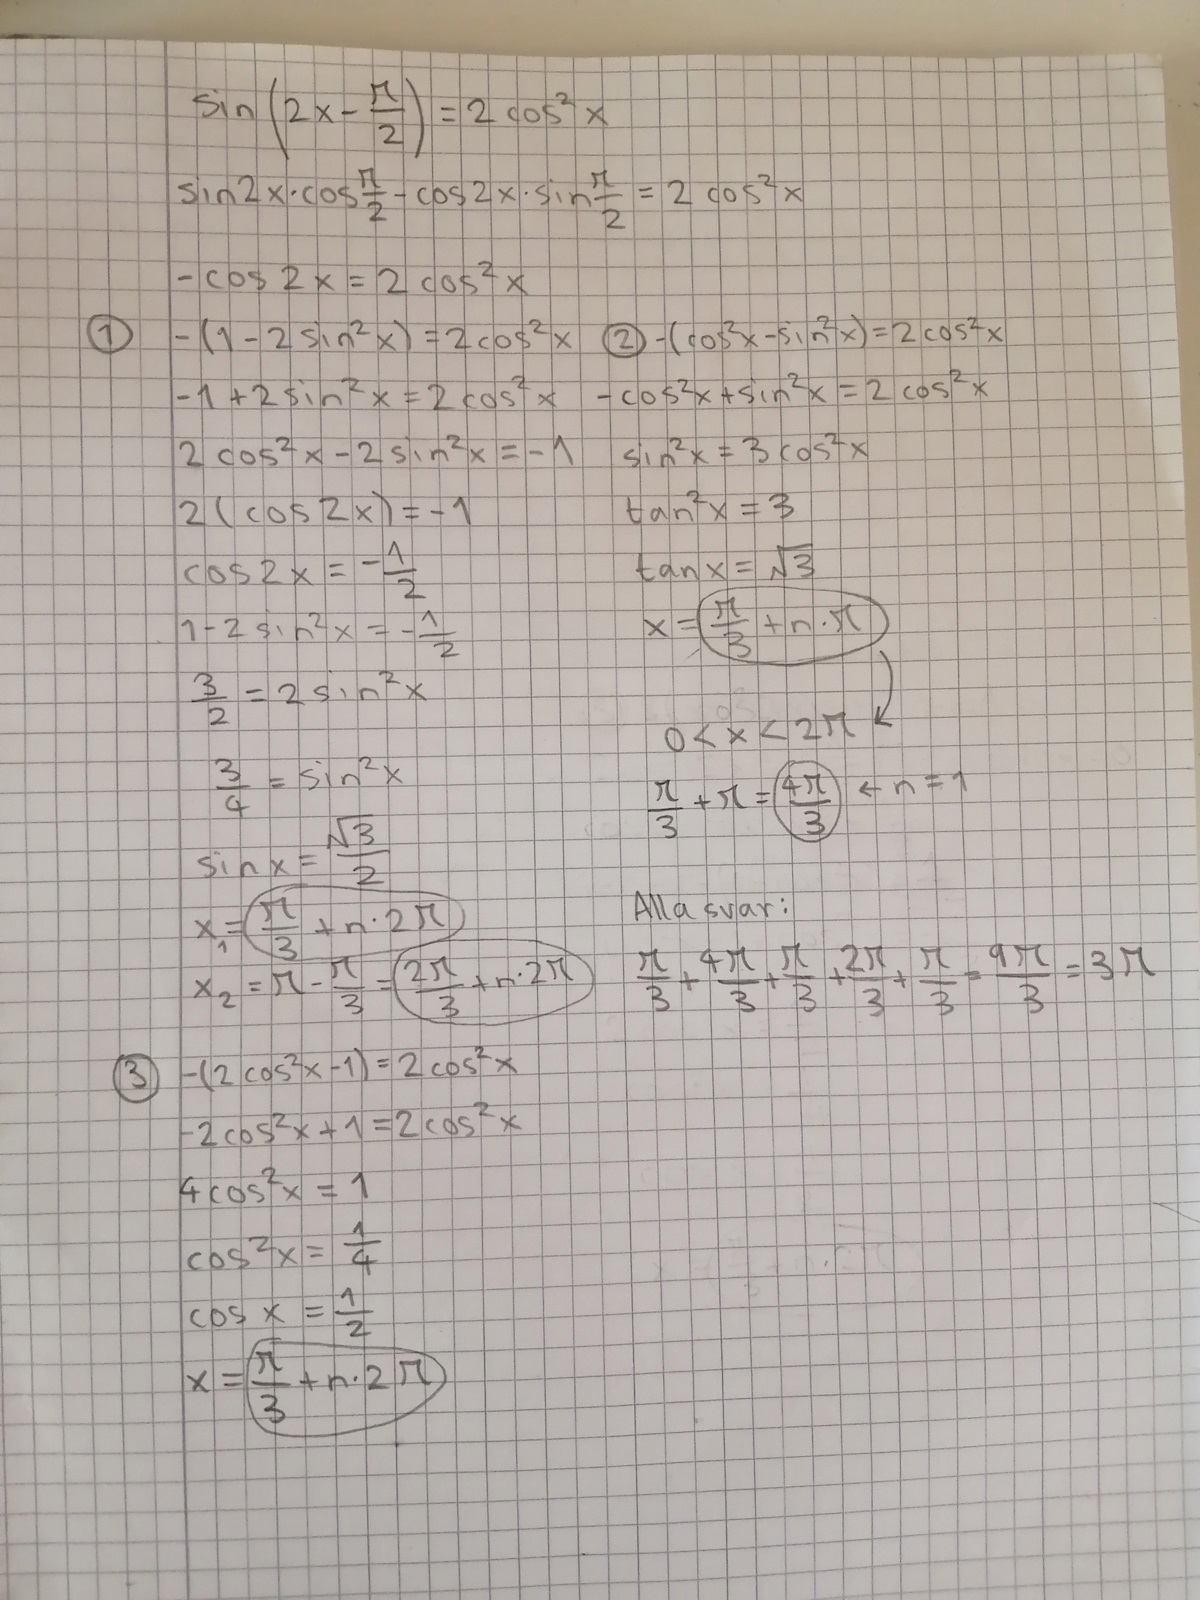 sin(2x - π/2) = 2 cos²x
sin2x·cos π/2 - cos2x·sin π/2 = 2 cos²x
-cos2x = 2 cos²x
① -(1-2sin²x) = 2cos²x
-1+2sin²x = 2cos²x
2cos²x - 2sin²x = -1
2(cos2x) = -1
cos2x = -1/2
1-2sin²x = -1/2
3/2 = 2sin²x
3/4 = sin²x
sinx = √3/2
x₁ = π/3 + n·2π
x₂ = π - π/3 = 2π/3 + n·2π
② -(cos²x - sin²x) = 2cos²x
-cos²x + sin²x = 2 cos²x
sin²x = 3cos²x
tan²x = 3
tanx = √3
x = π/3 + n·π
0 < x < 2π
π/3 + π = 4π/3 ← n = 1
Alla svar:
π/3 + 4π/3 + π/3 + 2π/3 + π/3 = 9π/3 = 3π
③ -(2cos²x-1) = 2cos²x
-2cos²x + 1 = 2cos²x
4cos²x = 1
cos²x = 1/4
cos x = 1/2
x = π/3 + n·2π